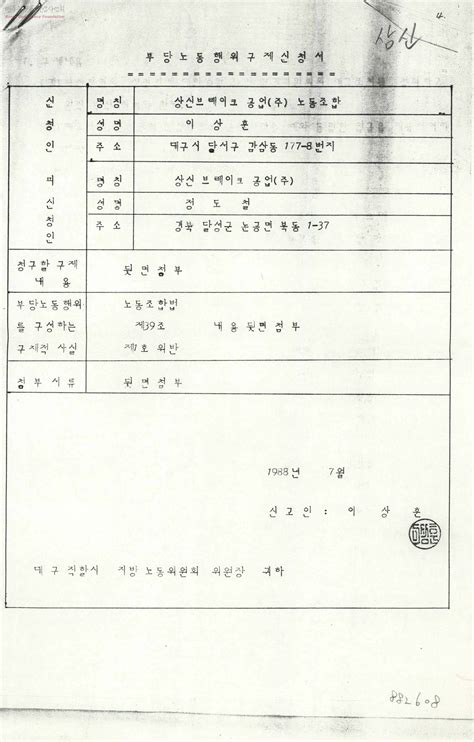 4.
상신
부당노동행위구제신청서
신청인 명칭 상신브레이크 공업(주) 노동조합
성명 이상훈
주소 대구시 달서구 감삼동 177-8번지
피신청인 명칭 상신브레이크 공업(주)
성명 정도철
주소 경북 달성군 논공면 북동 1-37
청구할 구제 내용 뒷면첨부
부당노동행위 노동조합법
를 구성하는 제39조 내용 뒷면첨부
구체적 사실 제1호 위반
첨부서류 뒷면첨부
1988년 7월
신고인 : 이상훈
대구 직할시 지방노동위원회 위원장 귀하
882608